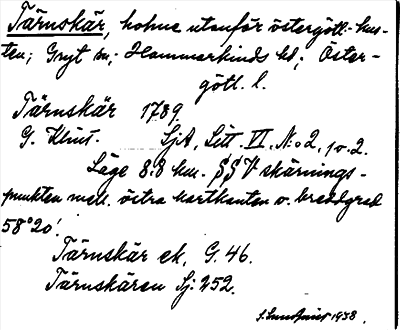 Tärnskär, holme utanför östergötl. kus-
ten; Gryt sn; Hammarkinds hd; Öster-
götl. l.
Tärnskär 1789.
G. Klint. SjA, Litt. VI, N:o 2, 1 o. 2.
Läge 8.8 km. SSV skärnings-
punkten mell. östra kartkanten o. breddgrad
58°20'.
Tärnskär ek. G. 46.
Tärnskären Sj: 252.
1938.